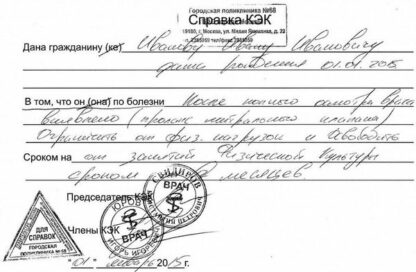 Городская поликлиника №68
Справка КЭК
г. Москва, ул. Малая Якиманка, д. 22
Дана гражданину (ке) Иванову Ивану Ивановичу
дата рождения 01.01.2005
В том, что он (она) по болезни После полного осмотра врача
выявлено (пролапс митрального клапана)
Ограничить от физ. нагрузок и Освободить
Сроком на от занятий Физической Культуры
сроком месяцев.
Председатель КЭК
Члены КЭК
ВРАЧ
ВРАЧ
ДЛЯ
СПРАВОК
ГОРОДСКАЯ
ПОЛИКЛИНИКА № 68
"01" 2015 г.